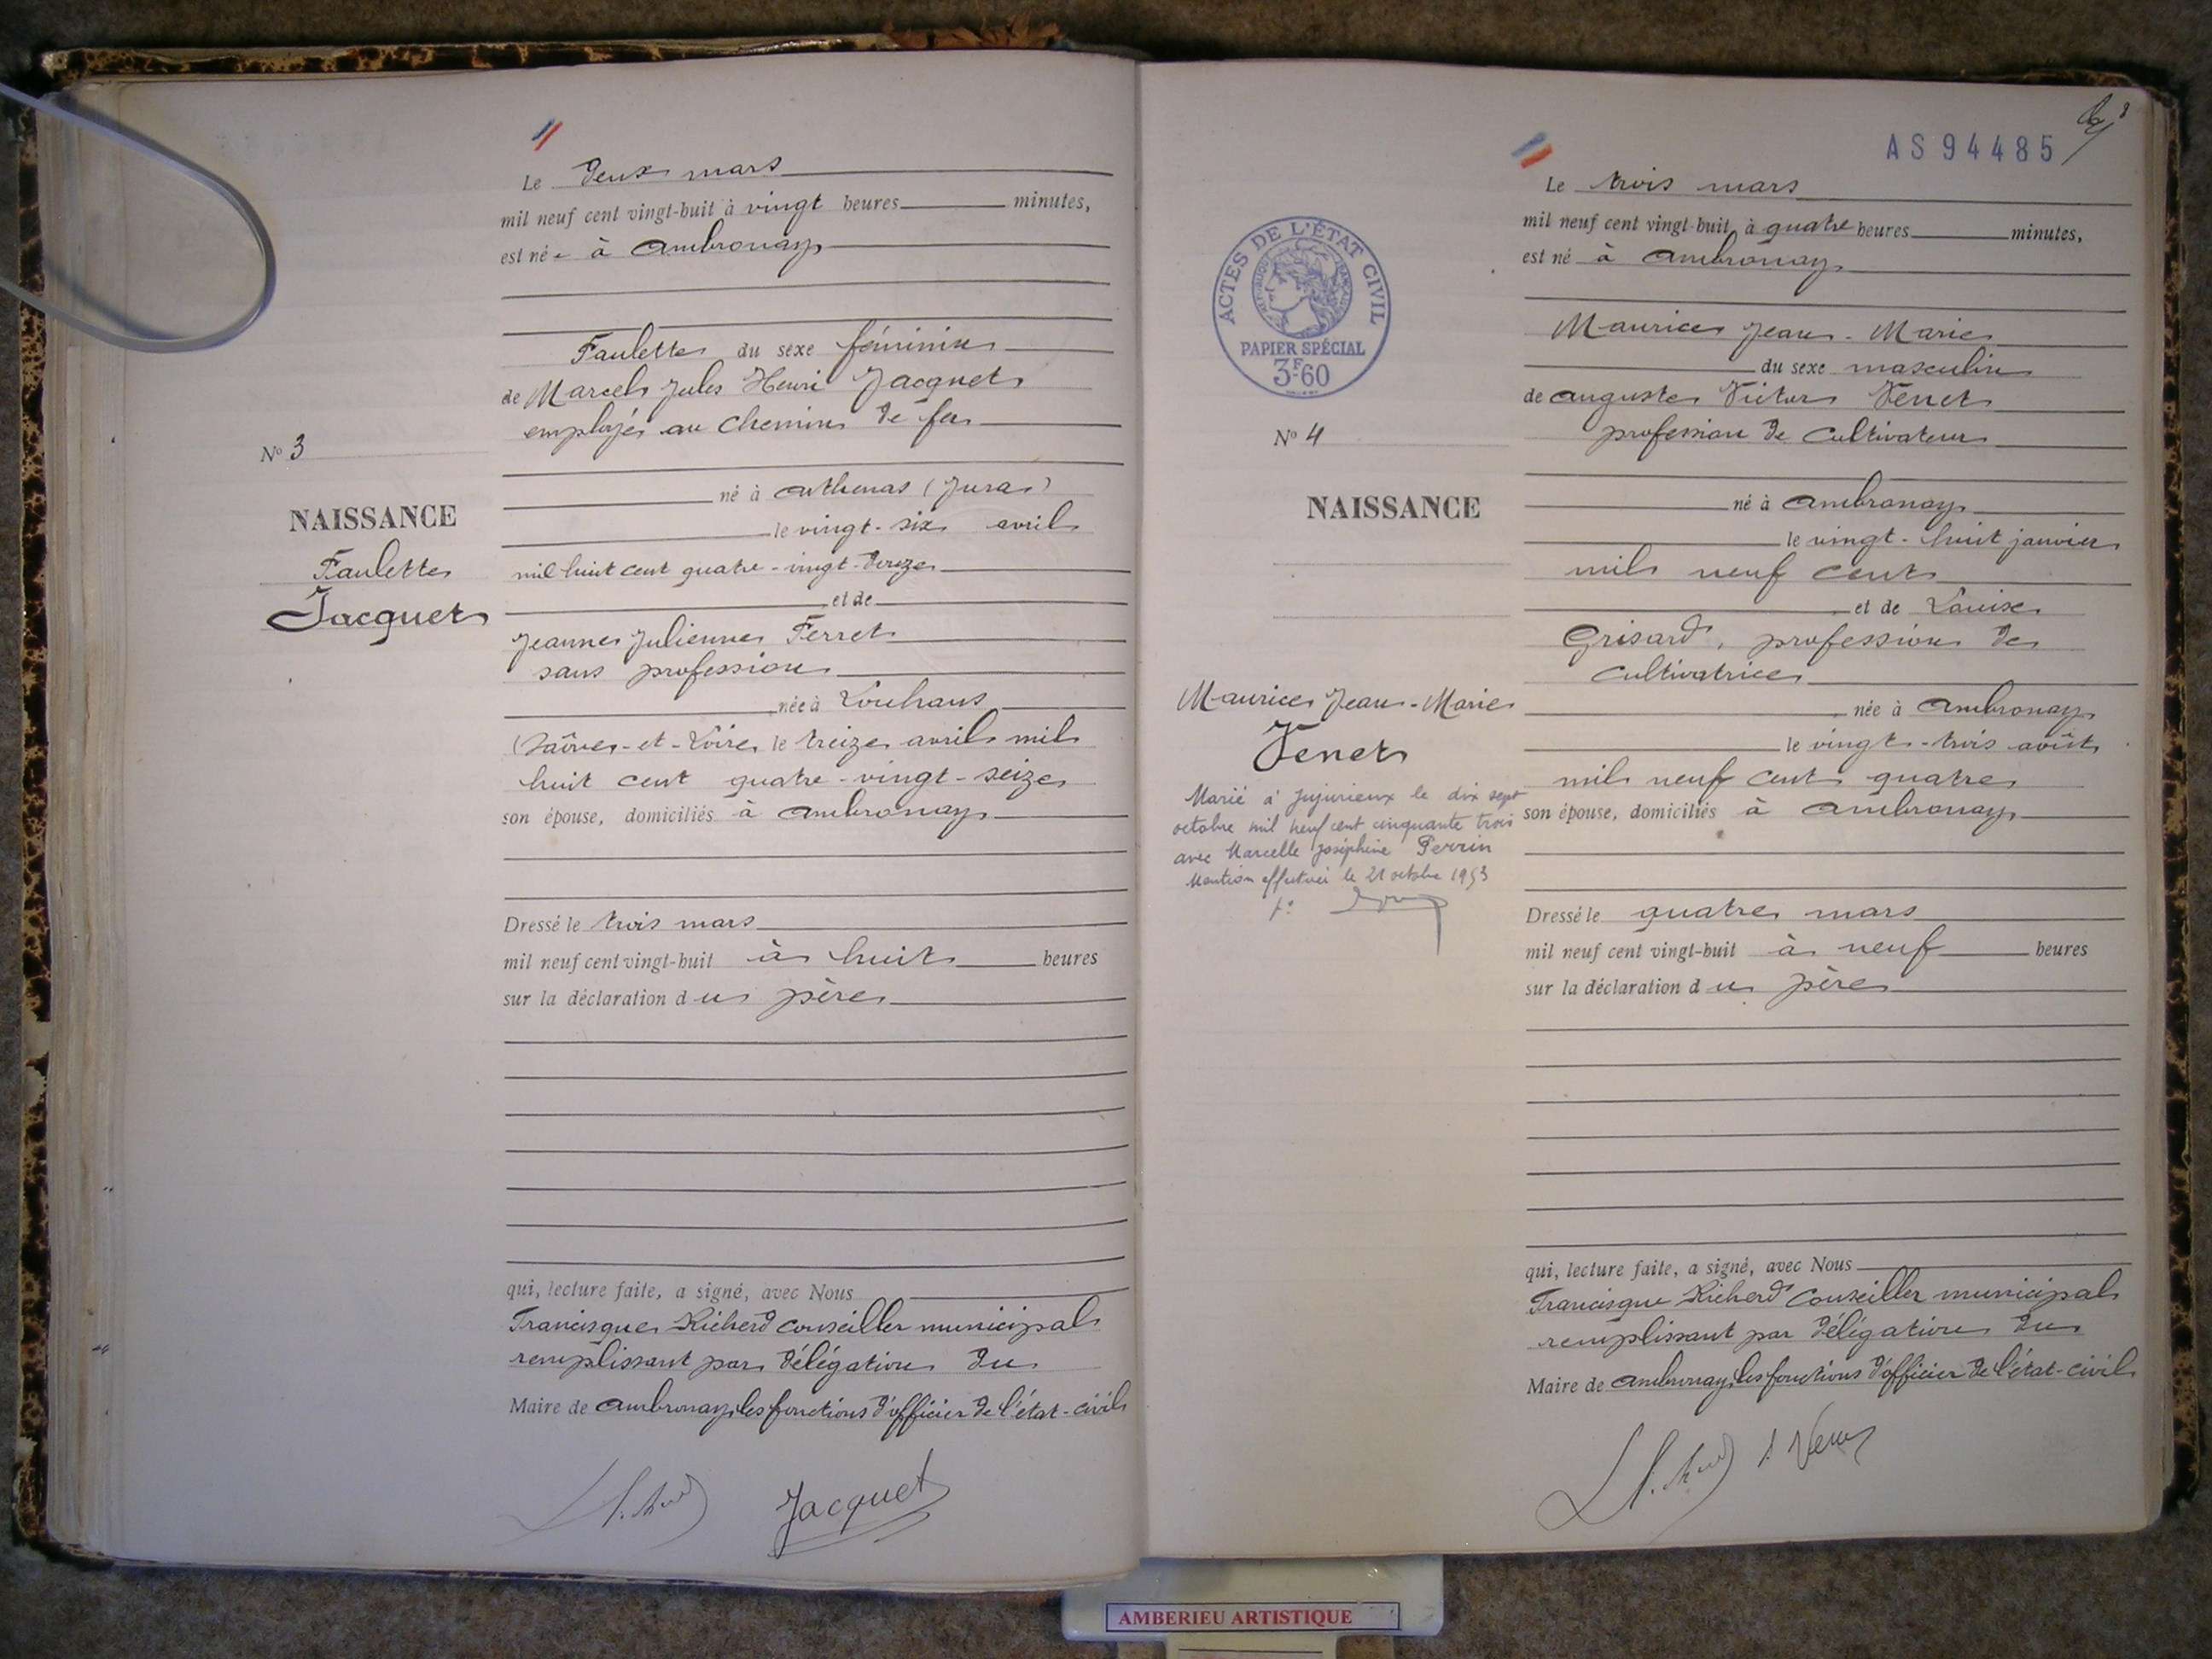 Le deux mars
mil neuf cent vingt-huit à vingt heures minutes,
est née à Ambronay
Paulette du sexe féminin
de Marcel Jules Henri Jacquet
employé au chemin de fer
né à Arthenas (Jura)
le vingt-six avril
mil huit cent quatre-vingt-douze
et de
Jeanne Julienne Ferret
sans profession
née à Louhans
(Saône-et-Loire, le treize avril mil
huit cent quatre-vingt-seize
son épouse, domiciliés à Ambronay
Dressé le trois mars
mil neuf cent vingt-huit à huit heures
sur la déclaration du père
qui, lecture faite, a signé, avec Nous
Francisque Richerd conseiller municipal
remplissant par délégation du
Maire de Ambronay, les fonctions d'officier de l'état-civil
Jacquet
No 3
NAISSANCE
Paulette
Jacquet
AS 94485
ACTES DE L'ÉTAT CIVIL
RÉPUBLIQUE FRANÇAISE
PAPIER SPÉCIAL
3F60
No 4
NAISSANCE
Maurice Jean-Marie
Venet
Marié à Jujurieux le dix sept
octobre mil neuf cent cinquante trois
avec Marcelle Joséphine Perrin
Mention effectuée le 21 octobre 1953
Le trois mars
mil neuf cent vingt-huit, à quatre heures minutes,
est né à Ambronay
Maurice Jean-Marie
du sexe masculin
de Auguste Victor Venet
profession de cultivateur
né à Ambronay
le vingt-huit janvier
mil neuf cent
et de Louise
Grisard, profession de
cultivatrice
née à Ambronay
le vingt-trois août
mil neuf cent quatre
son épouse, domiciliés à Ambronay
Dressé le quatre mars
mil neuf cent vingt-huit à neuf heures
sur la déclaration du père
qui, lecture faite, a signé, avec Nous
Francisque Richerd conseiller municipal
remplissant par délégation du
Maire de Ambronay, les fonctions d'officier de l'état-civil
AMBERIEU ARTISTIQUE